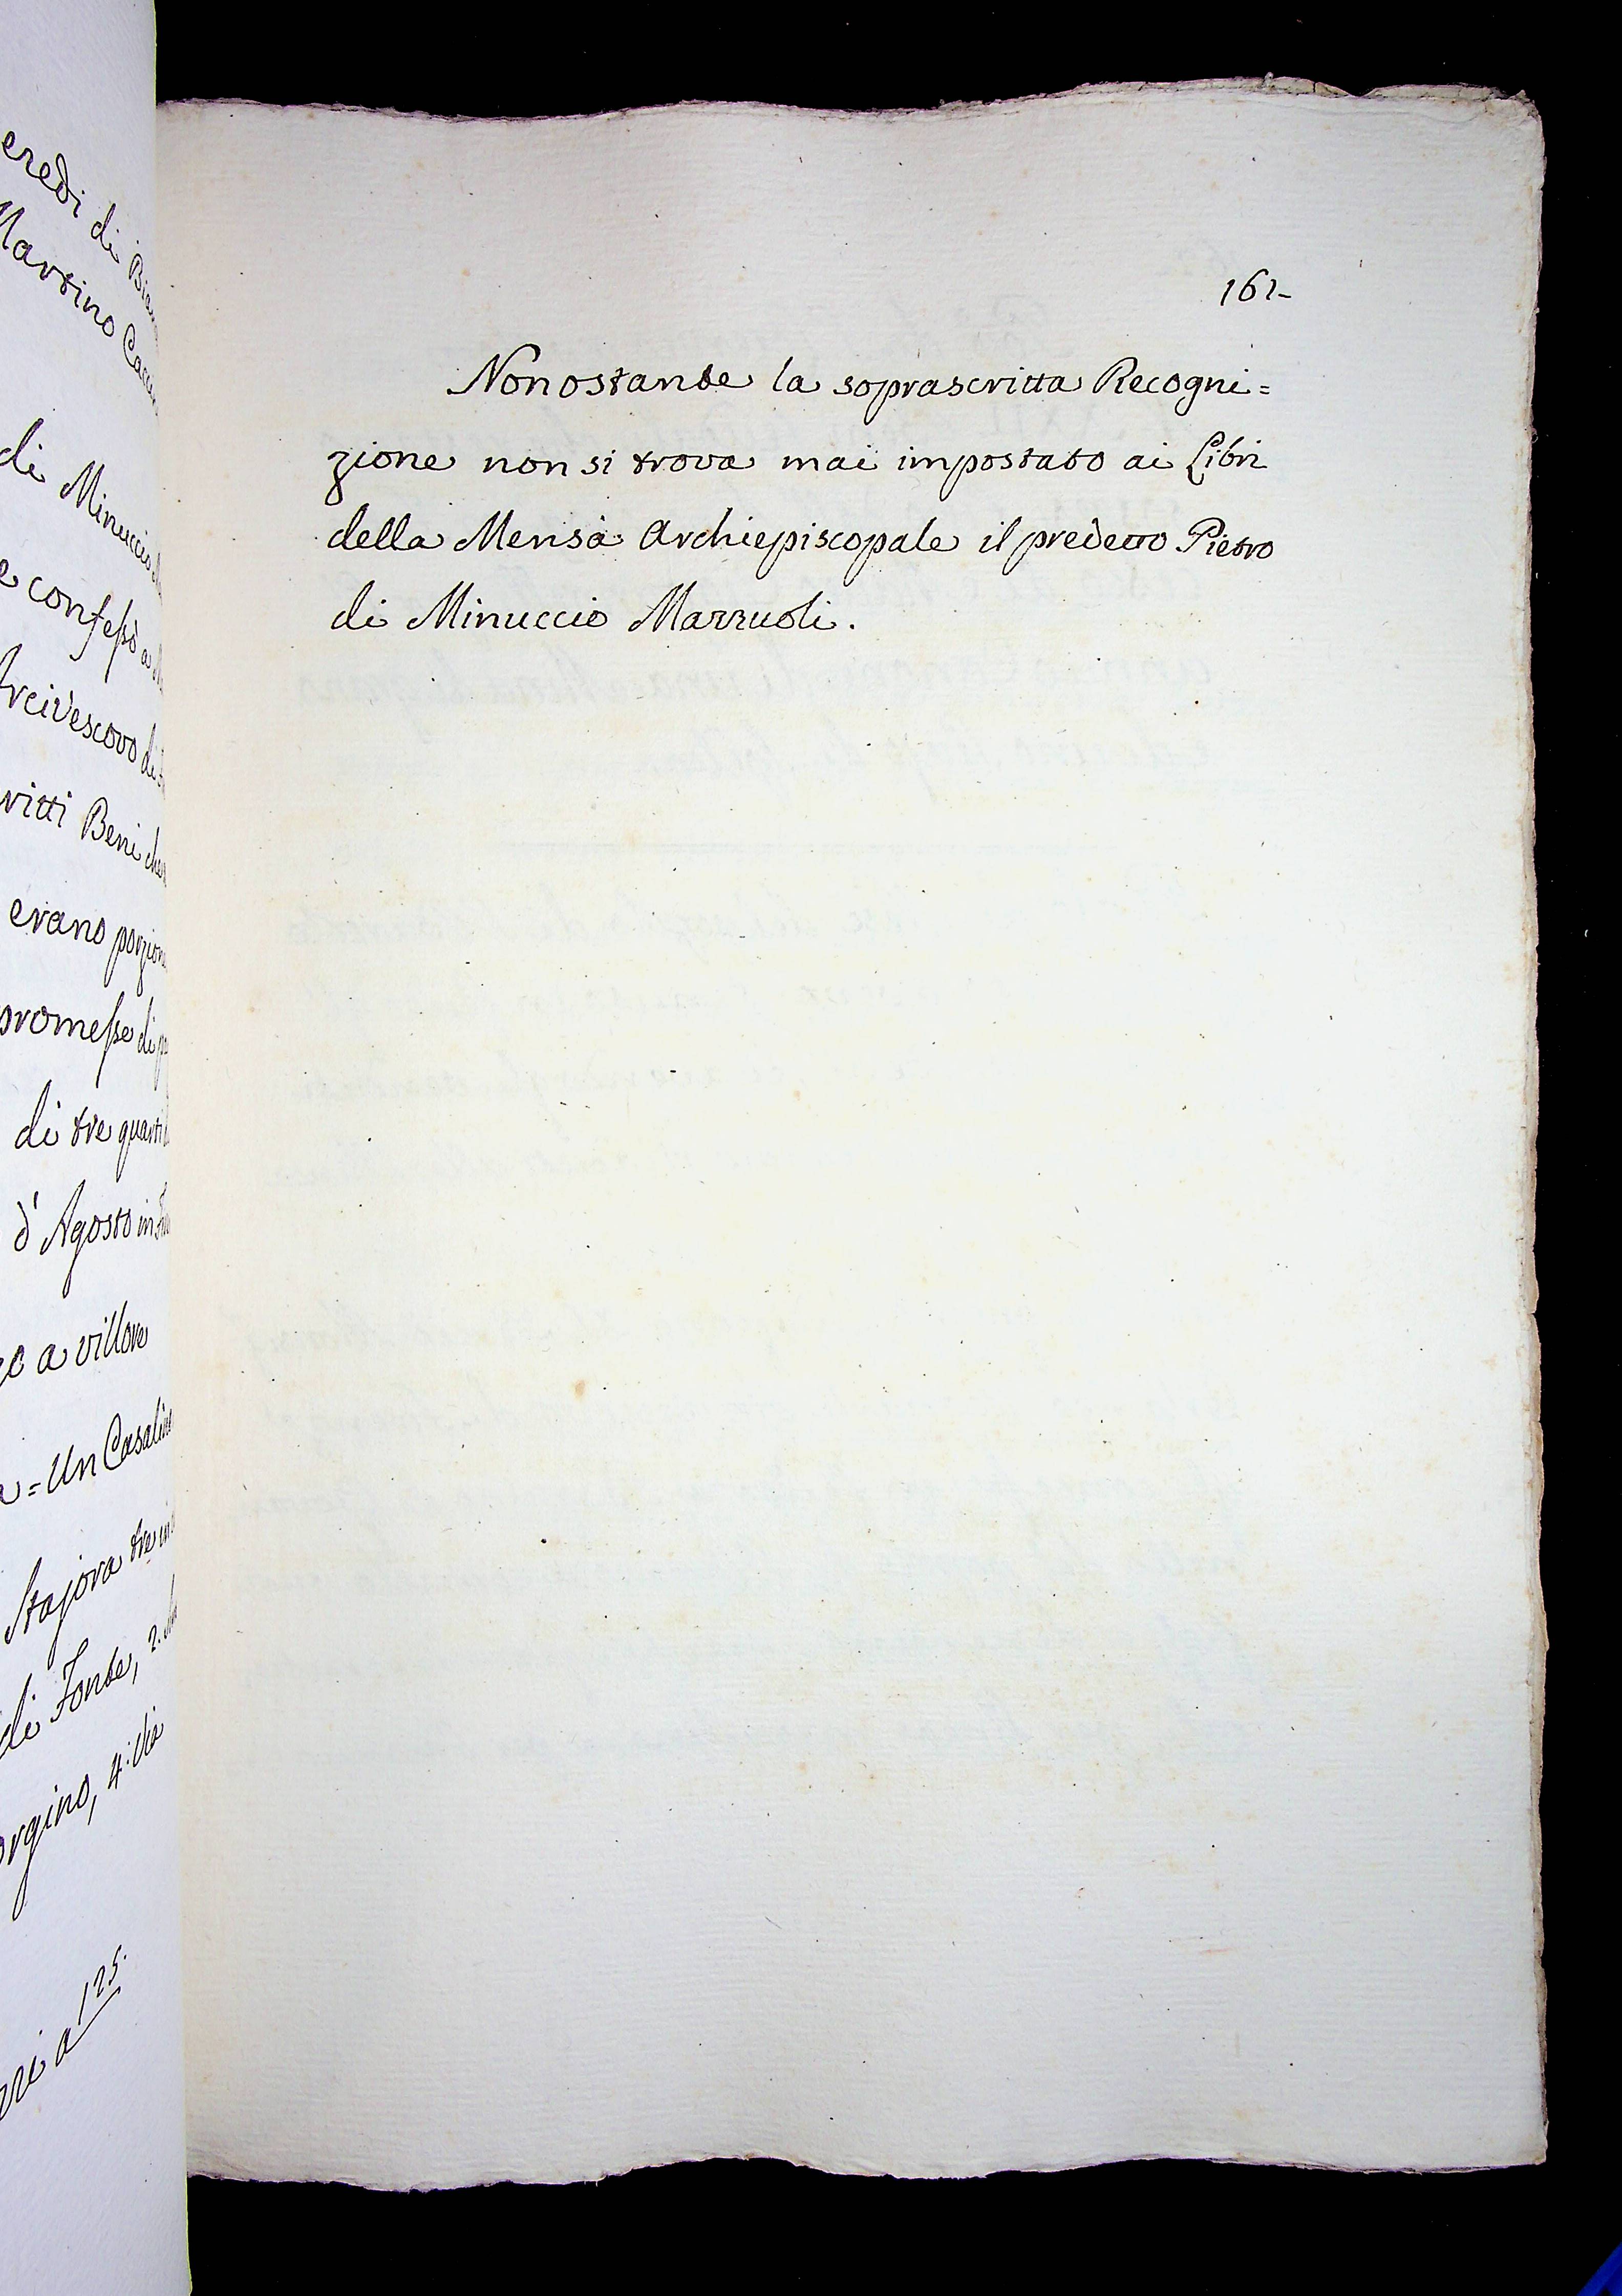 eredi di
Martino
di Minuccio
e confessò a
Arcivescovo di
ritti Beni che
erano porzion
promesse di
di tre quarti
d'Agosto in
a villore
= Un Casalino
Stajora tre in
di Fonte, 2.
orgino, 4. Via
a 125.
161-
Nonostante la soprascritta Recogni=
zione non si trova mai impostato ai Libri
della Mensa Archiepiscopale il predetto Pietro
di Minuccio Mazzuoli.